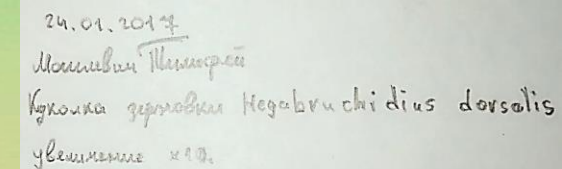 24.01.2017
Мошивин Тимофей
Куколка зерновки Megabruchidius dorsalis
увеличение x10.